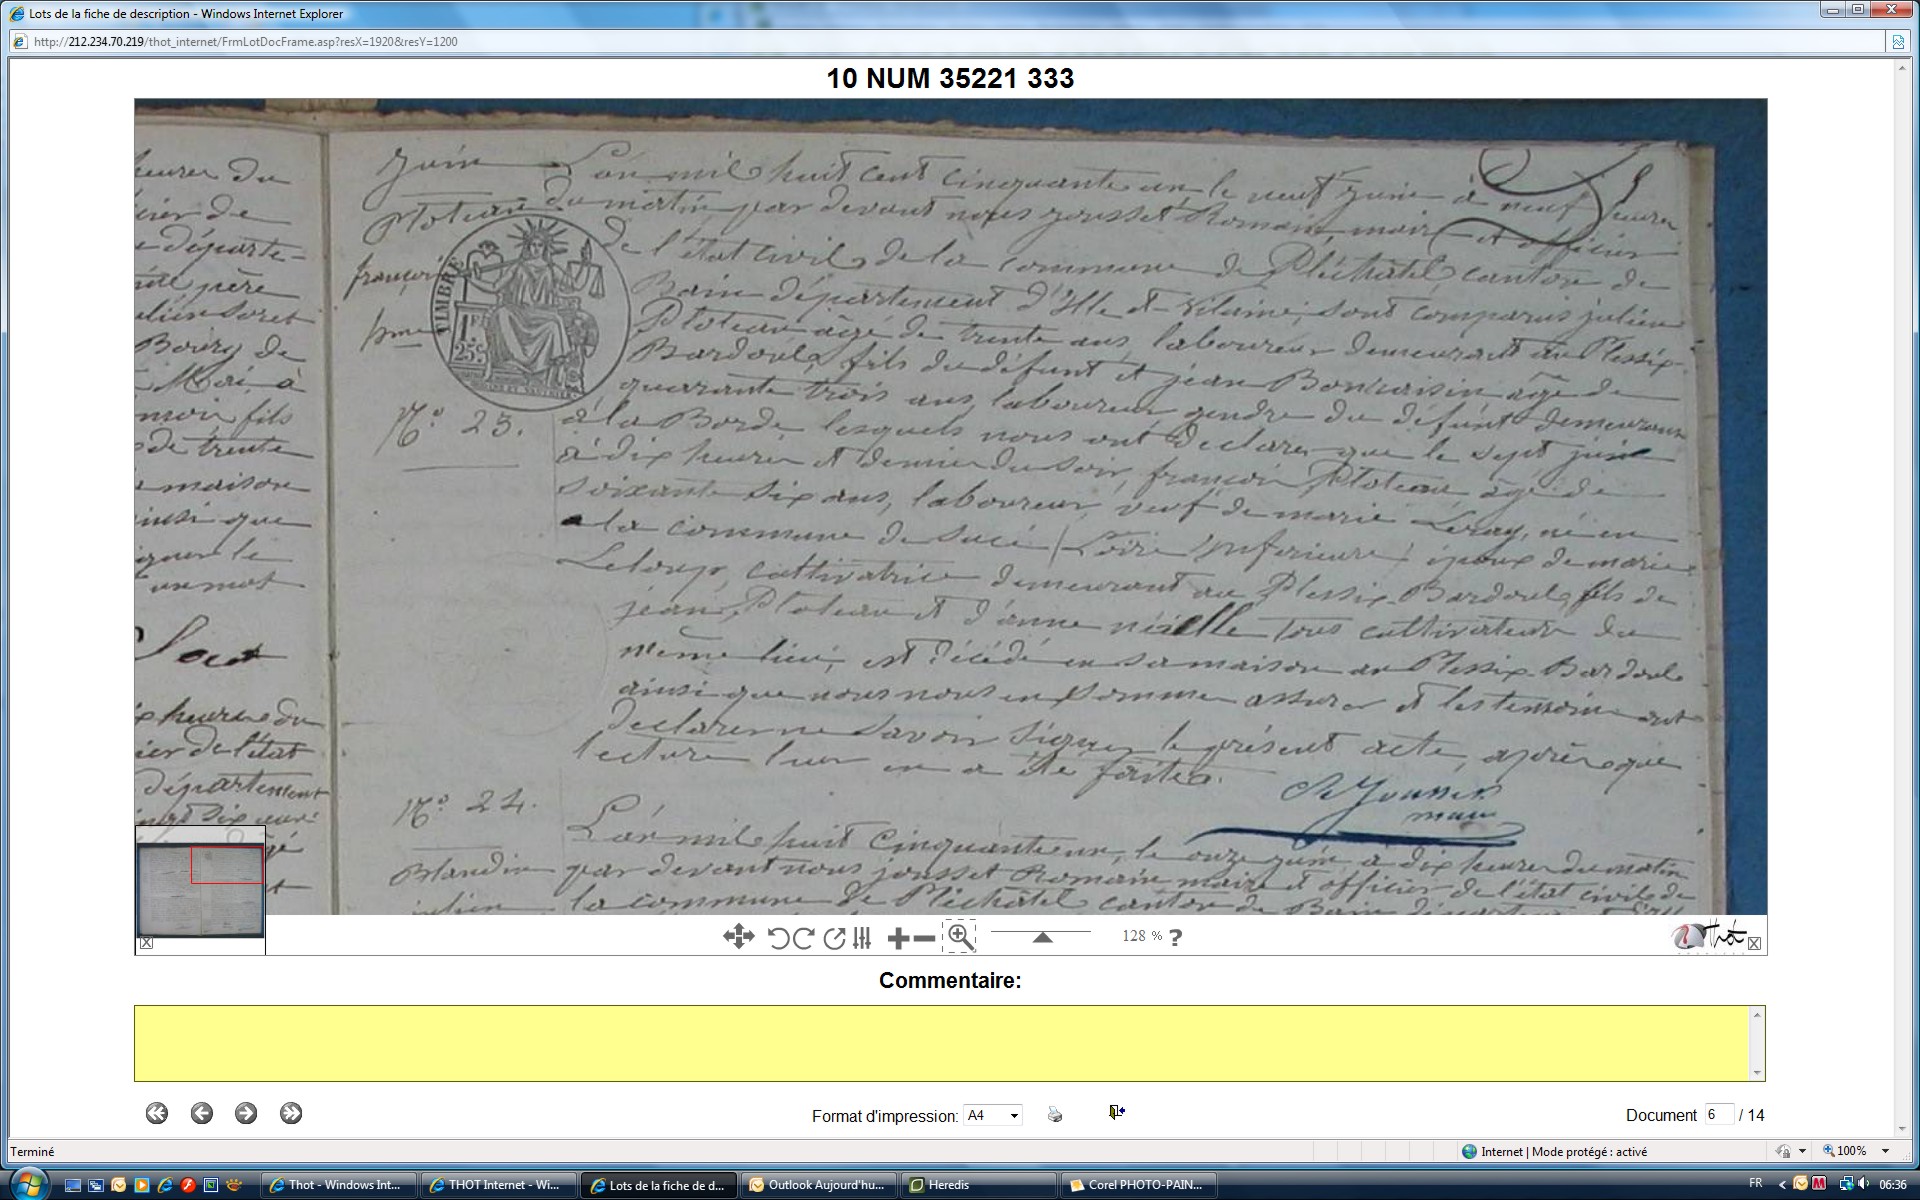 Lots de la fiche de description - Windows Internet Explorer
http://212.234.70.219/thot_internet/FrmLotDocFrame.asp?resX=1920&resY=1200
10 NUM 35221 333
heures du
cier de
départe-
père
Soret
Bourg de
Mai à
fils
de trente
maison
ainsi que
le
un mot
heures du
ier de l'état
département
juin
Ploteau
françois
TIMBRE
1F
25c
N° 23.
L'an mil huit cent cinquante un, le neuf juin à neuf heures
du matin par devant nous jousset Romain, maire et officier
de l'état civil de la commune de Pléchâtel, canton de
Bain département d'Ille et Vilaine, sont comparus julien
Ploteau âgé de trente ans, laboureur demeurant au Plessix
Bardoul, fils du défunt et jean âgé de
quarante trois ans, laboureur gendre du défunt demeurant
à la Borde lesquels nous ont déclaré que le sept juin
à dix heures et demie du soir, françois Ploteau âgé de
soixante six ans, laboureur, veuf de marie Leray, né en
la commune de Sucé (Loire Inferieure) époux de marie
Leloup, cultivatrice demeurant au Plessix-Bardoul, fils de
jean Ploteau et d'anne tous cultivateurs du
même lieu, est décédé en sa maison au Plessix-Bardoul
ainsi que nous nous en sommes assurer et les temoins ont
declarer ne savoir signer le présent acte, après que
lecture leur en a été faite.
R Jousset
maire
N° 24.
Blandin
julien
L'an mil huit cinquante un, le onze juin à dix heures du matin
par devant nous jousset Romain maire et officier de l'état civil de
la commune de Pléchâtel canton de Bain
128 %
?
Thot
Commentaire:
Format d'impression: A4
Document 6 / 14
Terminé
Internet | Mode protégé : activé
100%
Thot - Windows Int...
THOT Internet - Wi...
Lots de la fiche de d...
Outlook Aujourd'hu...
Heredis
Corel PHOTO-PAIN...
FR
06:36